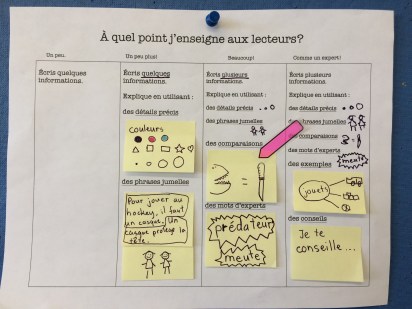 À quel point j'enseigne aux lecteurs?
Un peu.
Écris quelques
informations.
Un peu plus!
Écris quelques
informations.
Explique en utilisant :
des détails précis
couleurs
des phrases jumelles
Pour jouer au
hockey, il faut
un casque. Un
casque protège la
tête.
Beaucoup!
Écris plusieurs
informations.
Explique en utilisant :
des détails précis
des phrases jumelles
des comparaisons
=
des mots d'experts
prédateur
meute
Comme un expert!
Écris plusieurs
informations.
Explique en utilisant :
des détails précis
des phrases jumelles
des comparaisons
des mots d'experts
meute
des exemples
jouets
des conseils
Je te
conseille...